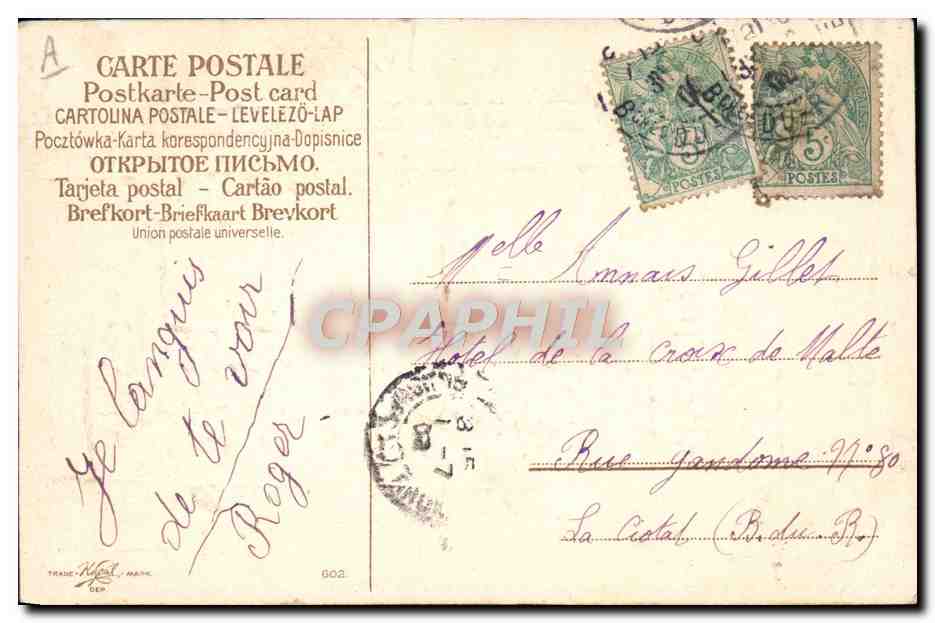 A
CARTE POSTALE
Postkarte-Post card
CARTOLINA POSTALE-LEVELEZŐ-LAP
Pocztówka-Karta korespondencyjna-Dopisnice
ОТКРЫТОЕ ПИСЬМО.
Tarjeta postal - Cartão postal.
Brefkort-Briefkaart Brevkort
Union postale universelle.
5c
POSTES
5c
POSTES
Je languis
de te voir
Roger
Melle Annais Gillet
Hotel de la croix de Malte
Rue gandome N° 80
La Ciotat (B. du. R.)
CPAPHIL
TRADE MARK
DEP.
602